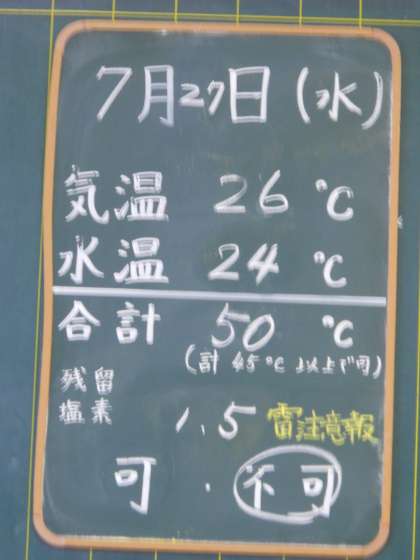 7月27日(水)
気温 26 ℃
水温 24 ℃
合計 50 ℃
(計 45℃ 以上で可)
残留
塩素 1.5 雷注意報
可 ・ 不可